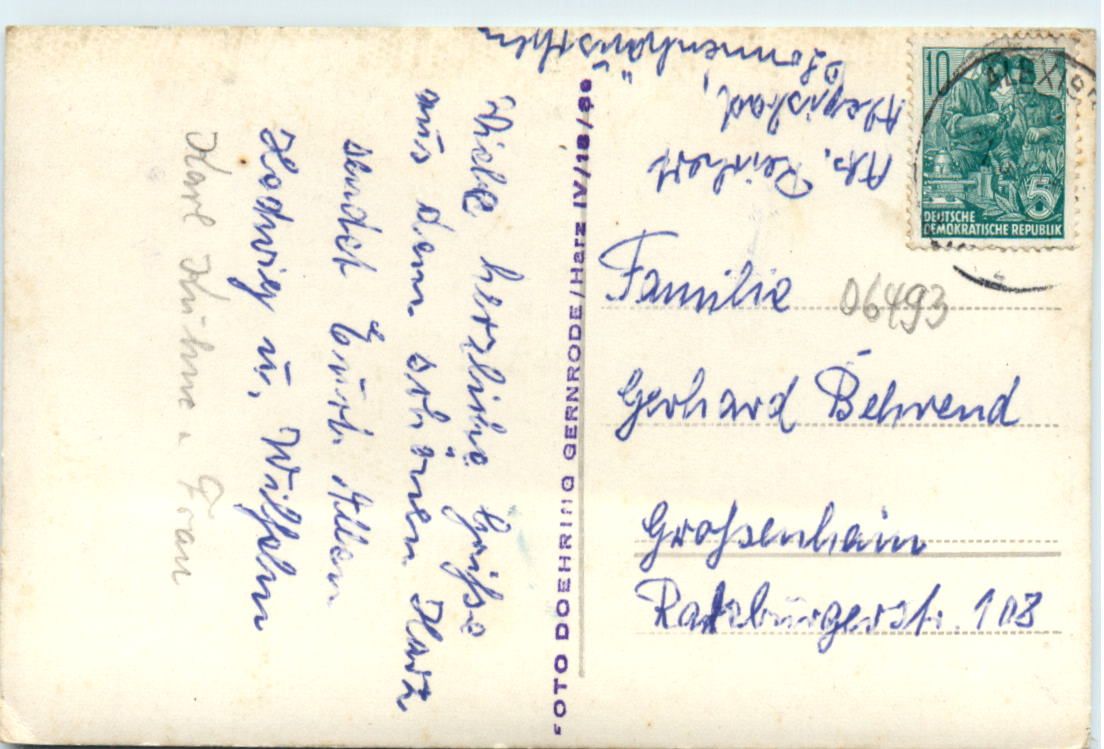 Viele herzliche Grüße
aus dem schönen Harz
sendet Euch Allen
Hedwig u. Wilhelm
Karl Kühne u Frau
FOTO DOEHRING GERNRODE/Harz IV/18/
Ab. Reichert
Alexisbad,
10
5
DEUTSCHE
DEMOKRATISCHE REPUBLIK
ALEXI
Familie
06493
Gerhard Behrend
Großenhain
Radeburgerstr. 108